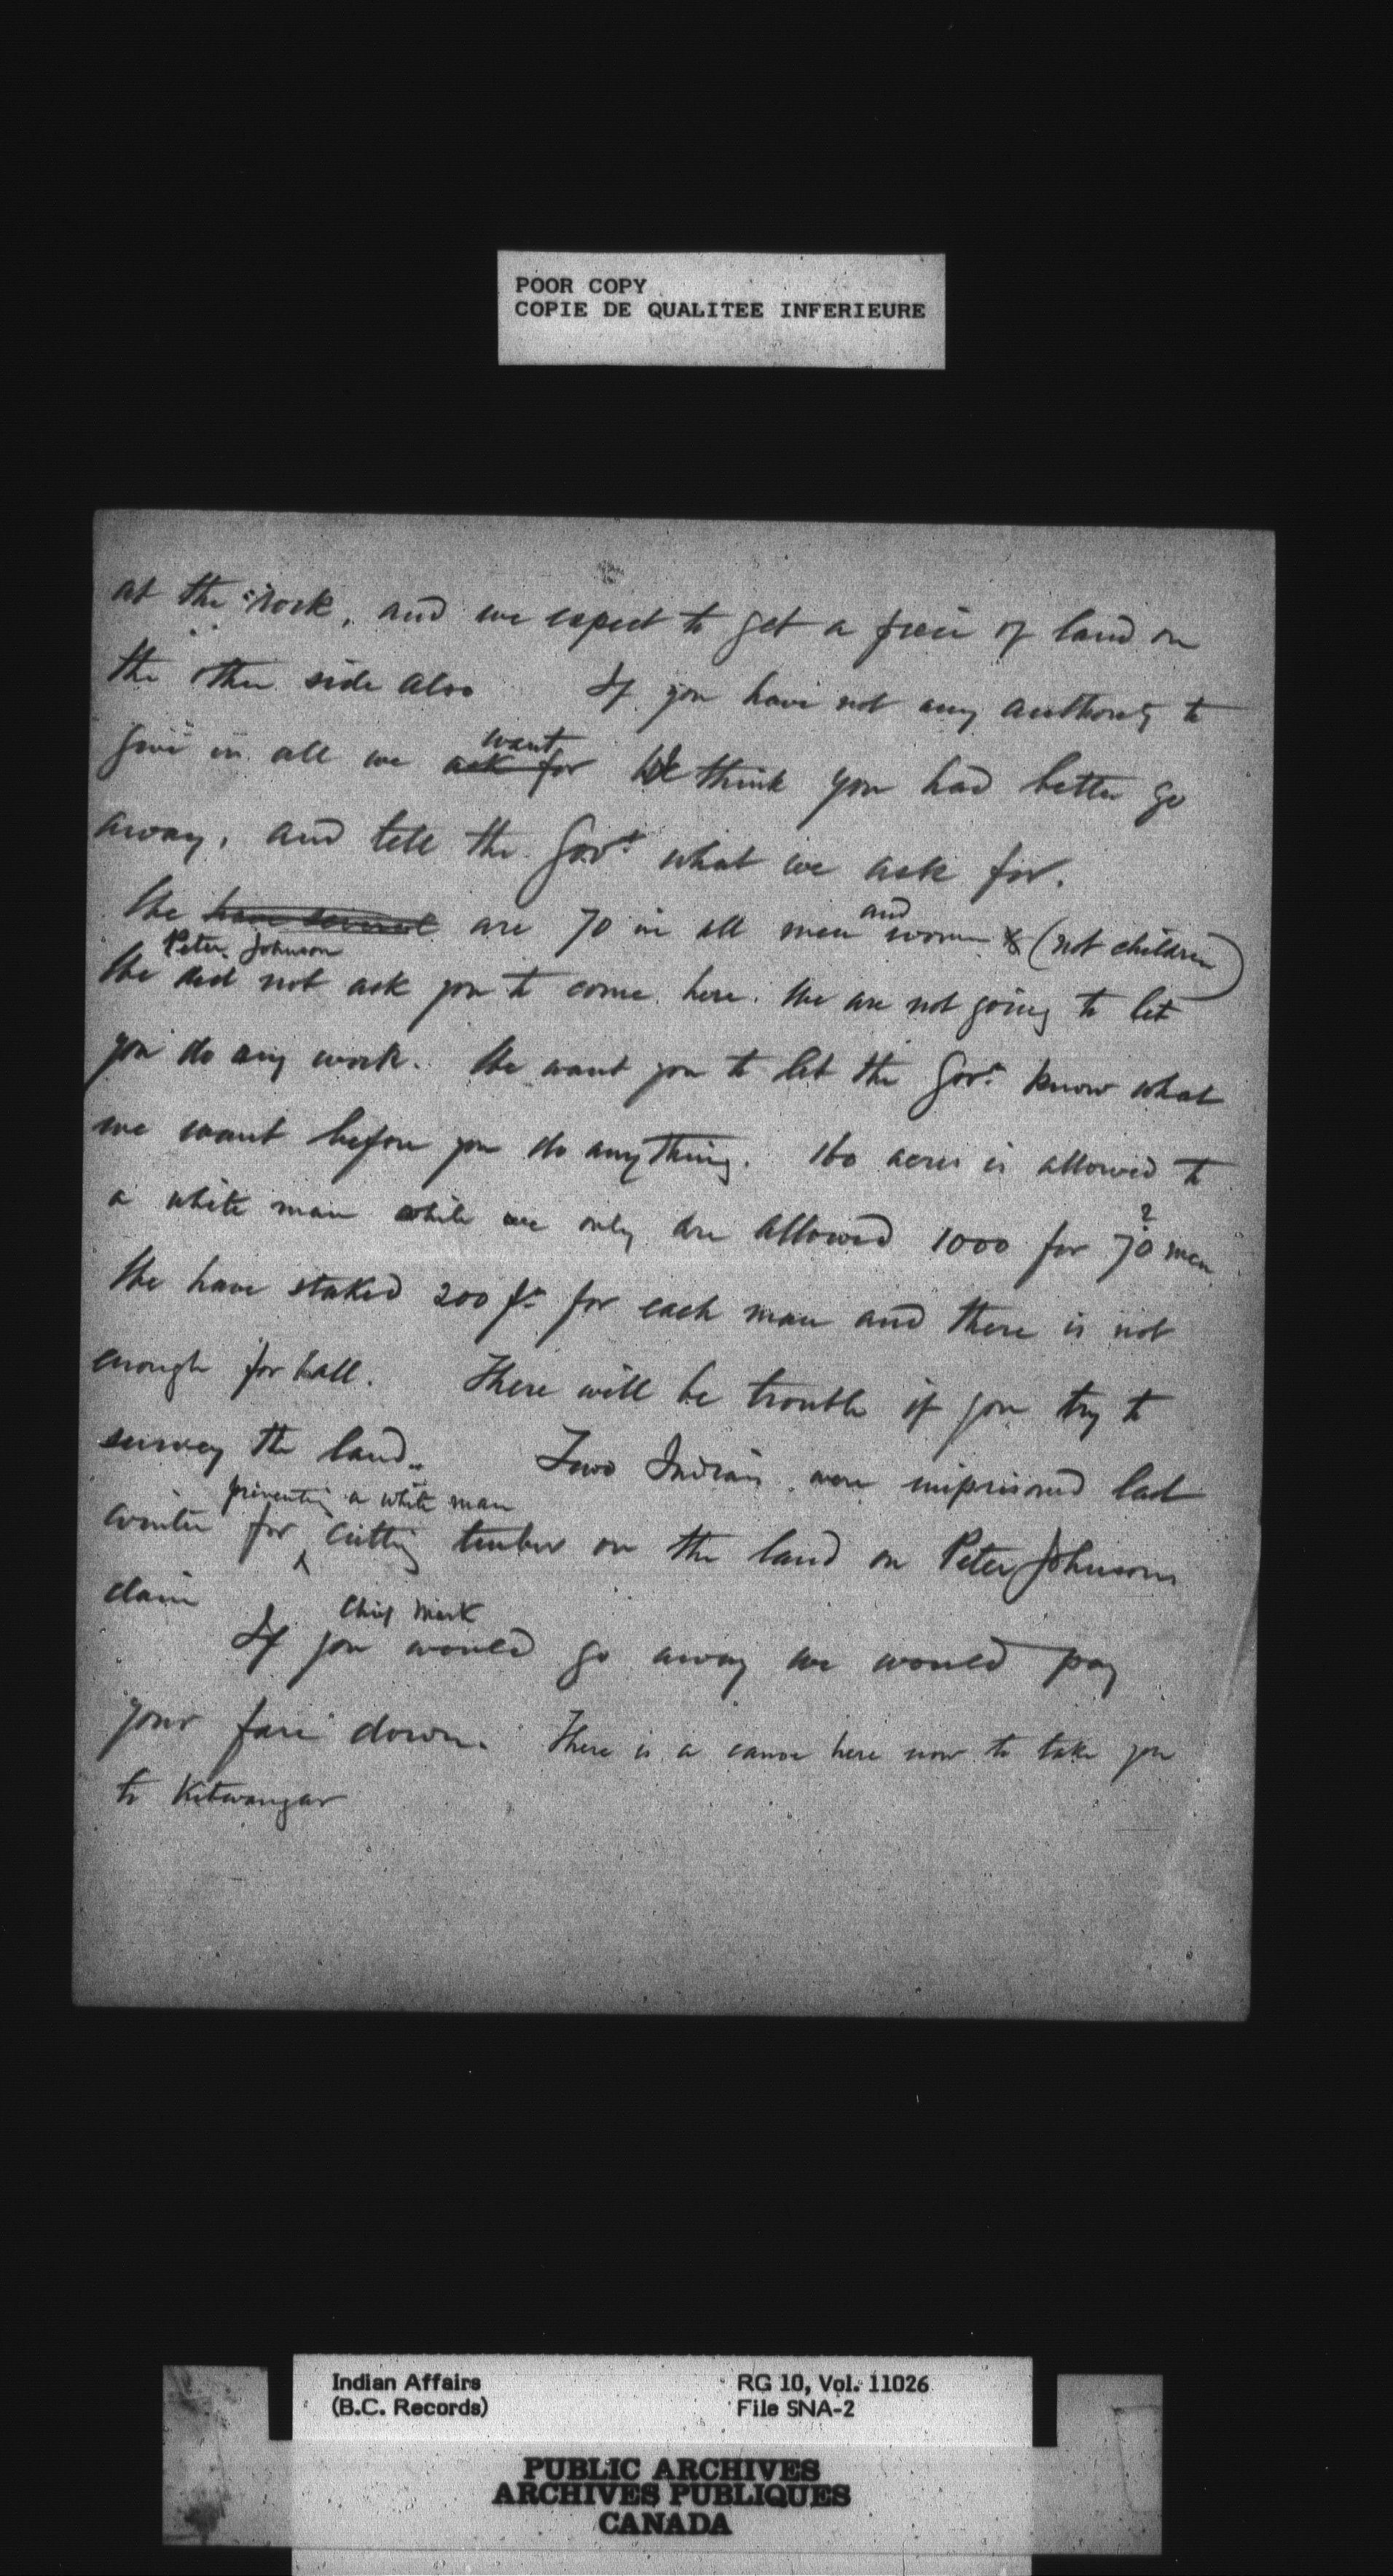 POOR COPY
COPIE DE QUALITEE INFERIEURE
at the rock, and we expect to get a piece of land on
the other side also If you have not any authority to
give us all we ask for want We think you had better go
away, and tell the Govt what we ask for.
We have several are 70 in all men and women & (not children)
Peter Johnson
We did not ask you to come here. We are not going to let
you do any work. We want you to let the Govt know what
we want before you do anything. 160 acres is allowed to
a white man while we only are allowed 1000 for 70 ? men
We have staked 200 ft for each man and there is not
enough for all. There will be trouble if you try to
survey the land. Two Indians were imprisoned last
preventing a white man
winter for cutting timber on the land on Peter Johnsons
claim
Chief Mark
If you would go away we would pay
your fare down. There is a canoe here now to take you
to Kitwangar
Indian Affairs
(B.C. Records)
RG 10, Vol. 11026
File SNA-2
PUBLIC ARCHIVES
ARCHIVES PUBLIQUES
CANADA